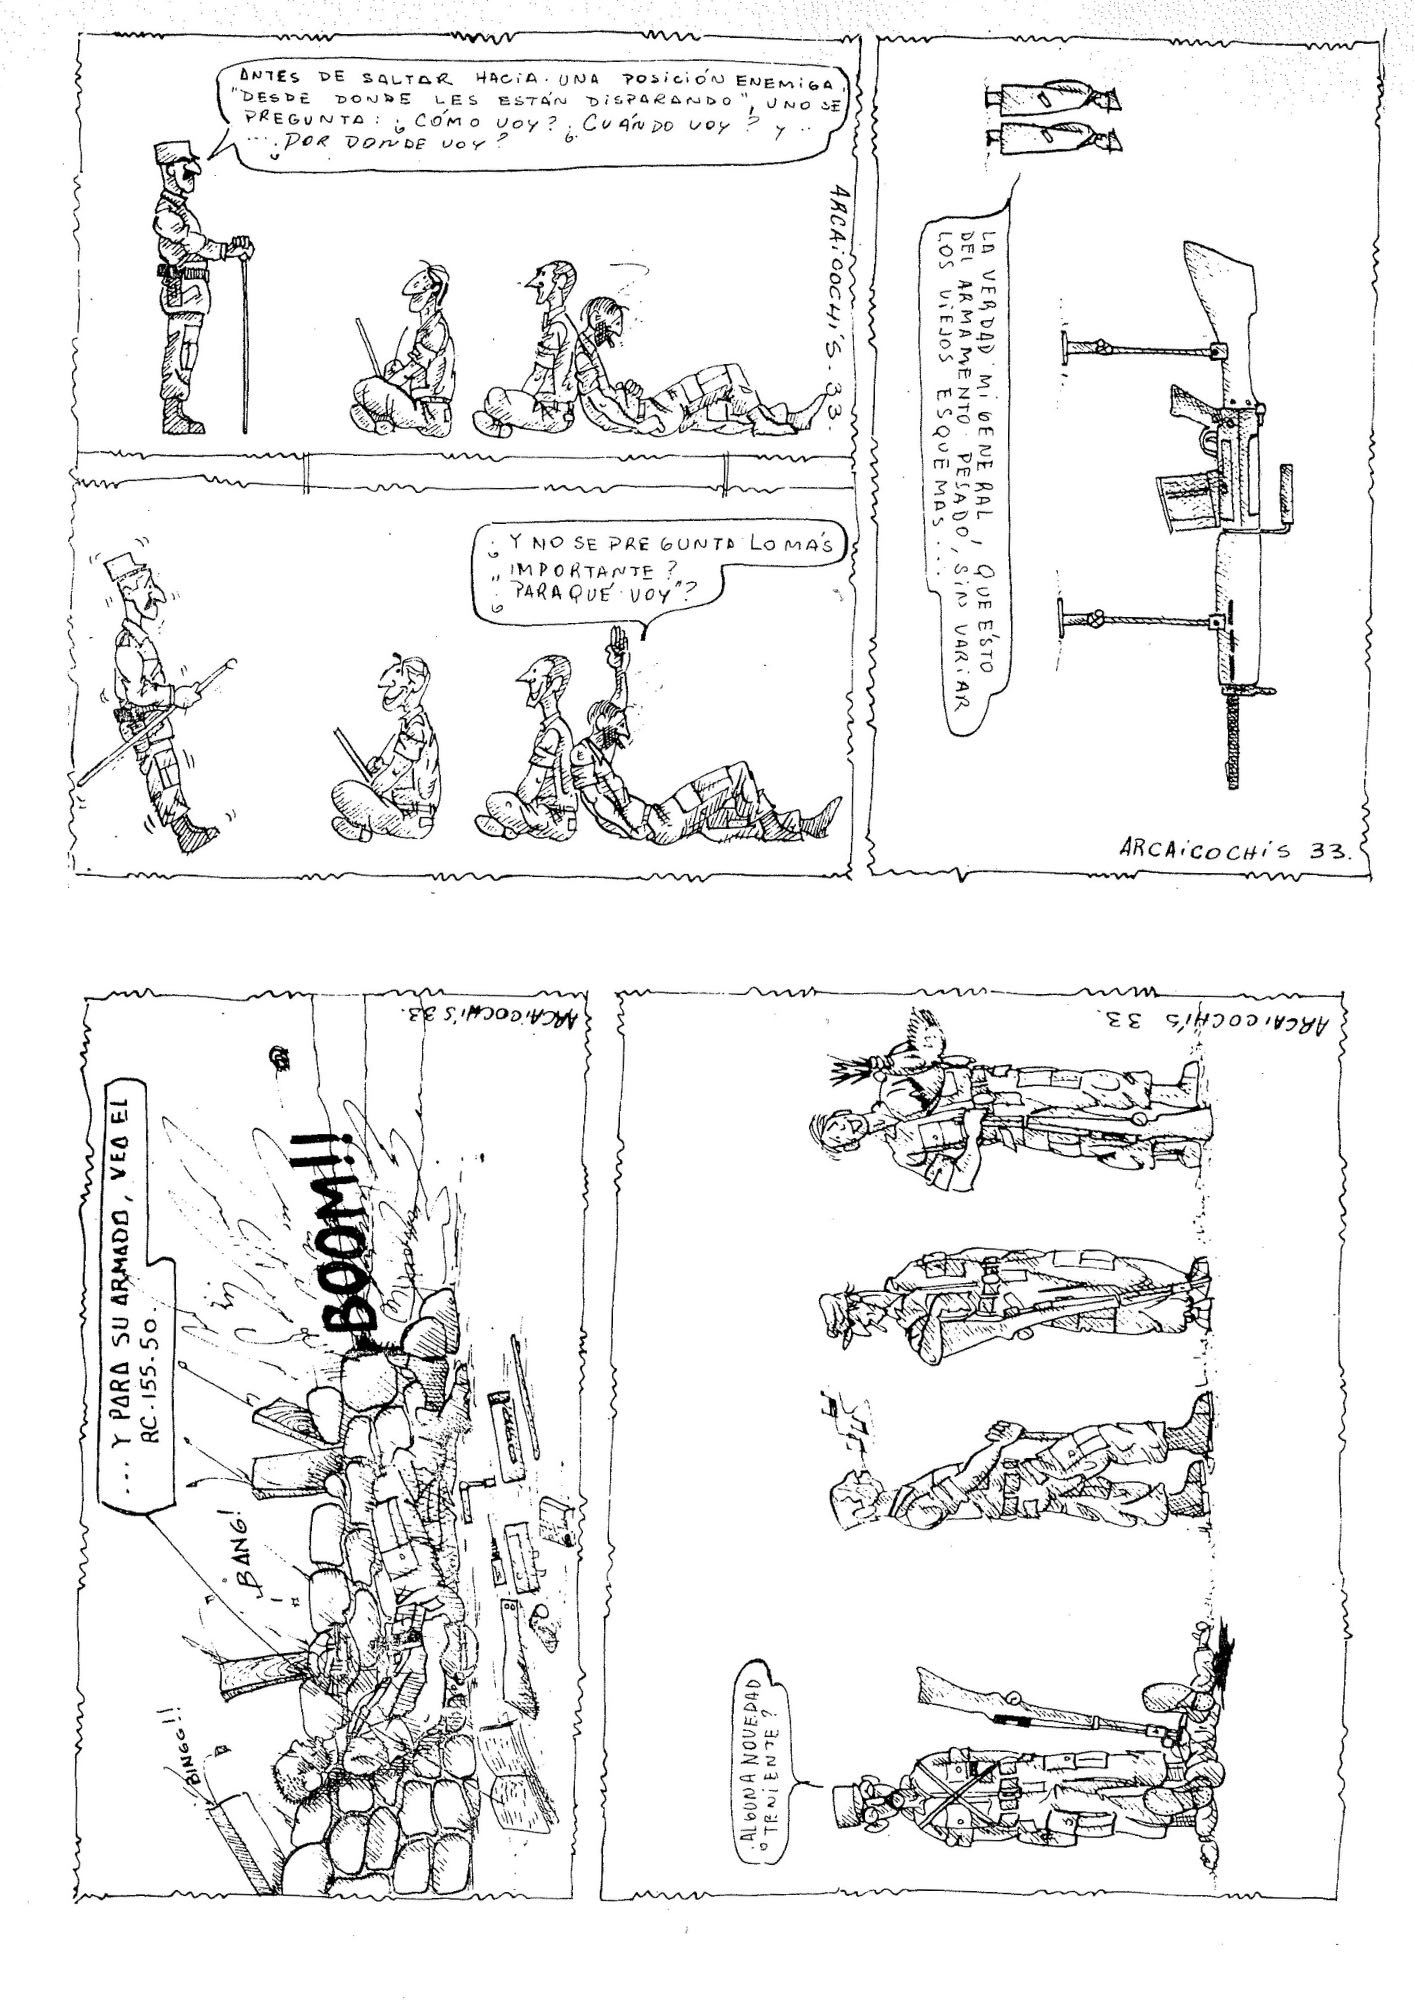 ANTES DE SALTAR HACIA UNA POSICIÓN ENEMIGA,
"DESDE DONDE LES ESTÁN DISPARANDO", UNO SE
PREGUNTA: ¿CÓMO VOY? ¿CUÁNDO VOY? Y ..
... ¿POR DONDE VOY?
ARCAiCOCHi'S-33.
¿Y NO SE PREGUNTA LO MÁS
IMPORTANTE?
¿"PARA QUÉ VOY"?
LA VERDAD MI GENERAL, QUE ÉSTO
DEL ARMAMENTO PESADO, SIN VARIAR
LOS VIEJOS ESQUEMAS....
ARCAiCOCHiS 33.
... Y PARA SU ARMADO, VEA EL
RC-155-50.
BOOM!!
BANG!
BINGG!!
ARCAiCOCHi'S 33.
¿ALGUNA NOVEDAD
TENIENTE?
ARCAiCOCHi'S 33.